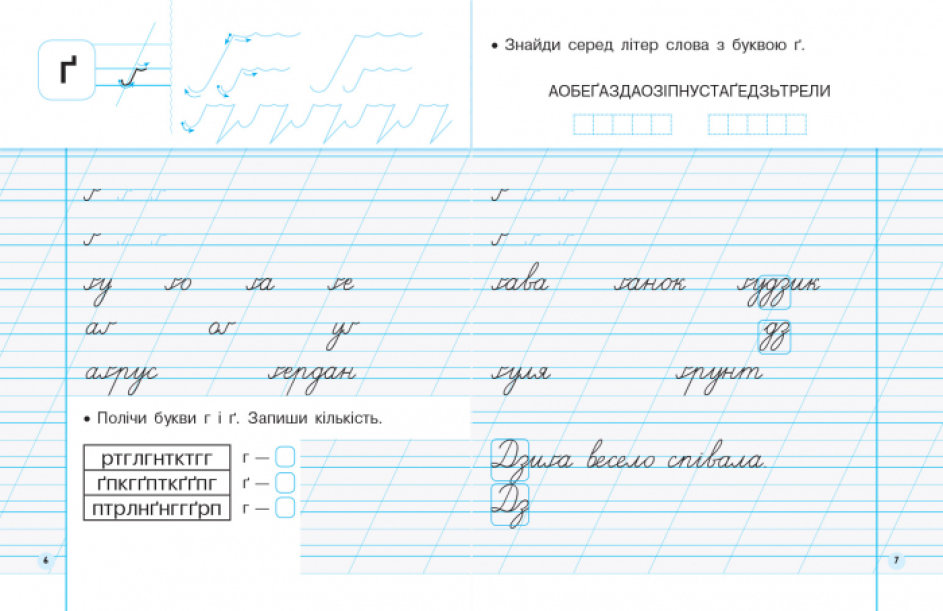 ґ ґ
ґ ґ ґ
ґ ґ ґ
ґу ґо ґа ґе
аґ оґ уґ
аґрус ґердан
• Полічи букви г і ґ. Запиши кількість.
ртглгнтктгг г —
ґпкгґпткґґпг ґ —
птрлнґнггґрп г —
6
• Знайди серед літер слова з буквою ґ.
АОБЕҐАЗДАОЗІПНУСТАҐЕДЗЬТРЕЛИ
ґ ґ ґ
ґ ґ ґ
ґава ґанок ґудзик
дз
ґуля ґрунт
Дзиґа весело співала.
Дз
7